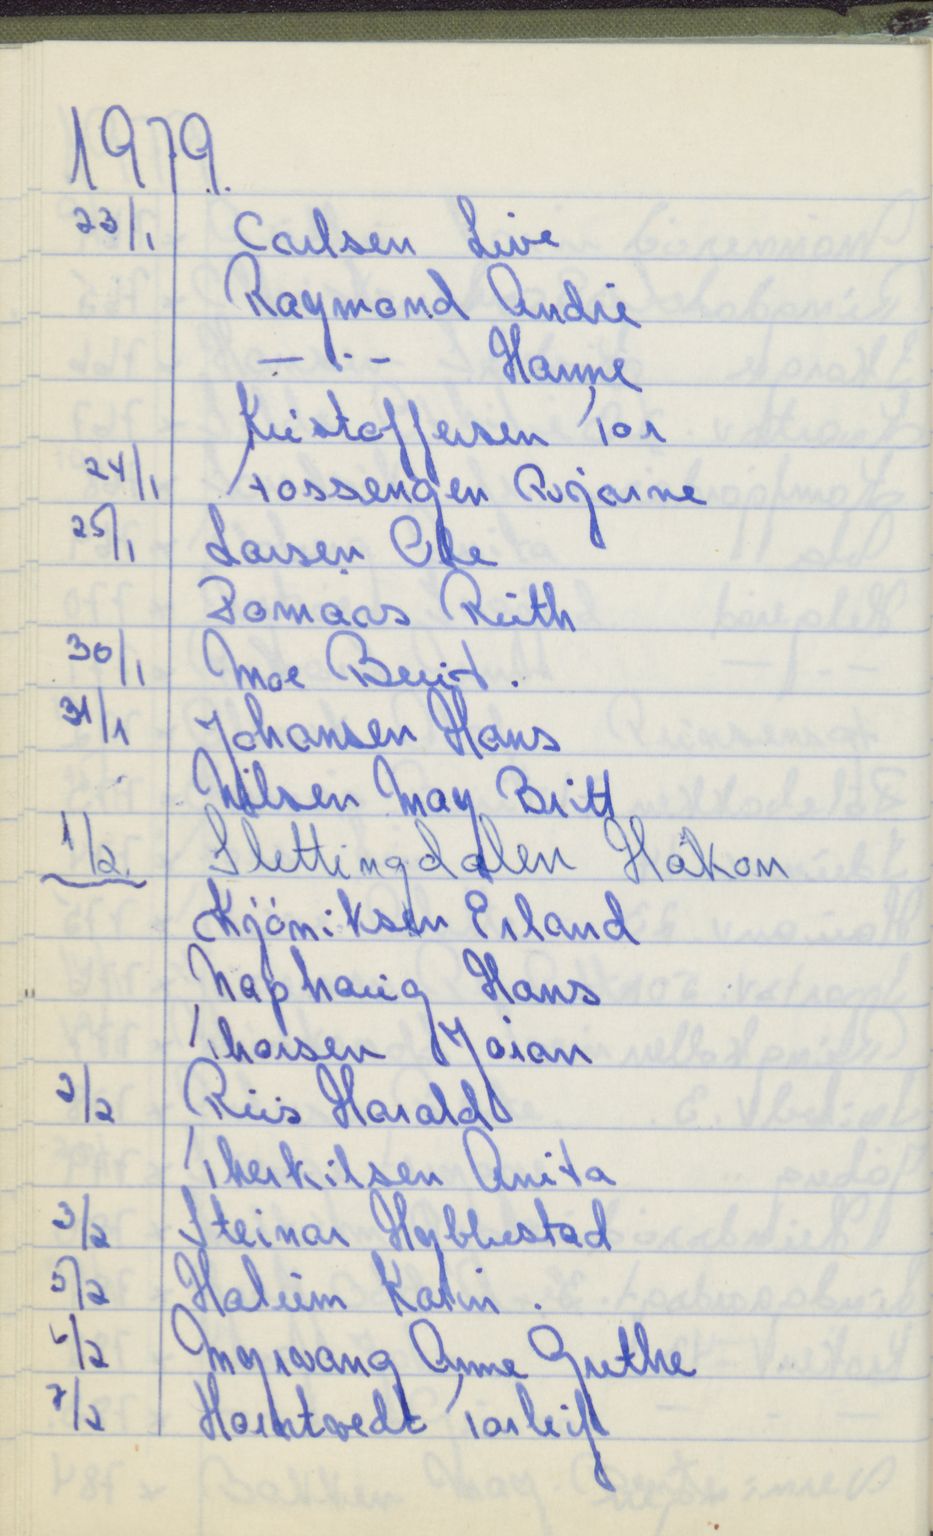 1979.
23/1 Carlsen Live
Raymond André
— · — Hanne
Kristoffersen Tor
24/1 Fossengen Bjarne
25/1 Larsen Ole
Bomaas Ruth
30/1 Moe Berit.
31/1 Johansen Hans
Nilsen May Britt
1/2. Slettingdalen Håkon
Kjöniksen Erland
Naphaug Hans
Thorsen Jøran
2/2 Riis Harald
Therkilsen Anita
3/2 Steinar Hybbestad
5/2 Karin.
6/2 Myrvang Anne Grethe
7/2 Horntvedt Torleif